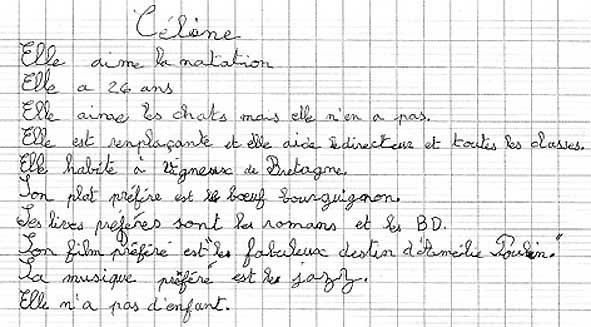 Célène
Elle aime la natation
Elle a 26 ans
Elle aime les chats mais elle n'en a pas.
Elle est remplaçante et elle aide le directeur et toutes les classes.
Elle habite à Vigneux de Bretagne.
Son plat préféré est le bœuf bourguignon.
Ses livres préférés sont les romans et les BD.
Son film préféré est "les fabuleux destin d'Amélie Poulain."
Sa musique préféré est le jazz.
Elle n'a pas d'enfant.